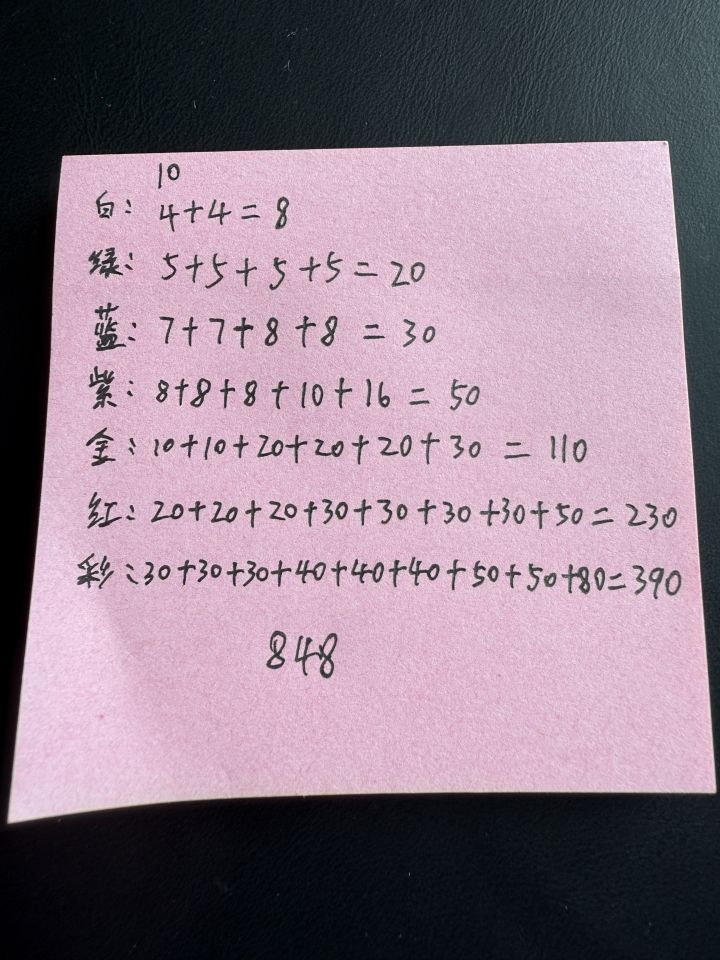 10
白: 4+4=8
绿: 5+5+5+5=20
蓝: 7+7+8+8=30
紫: 8+8+8+10+16=50
金: 10+10+20+20+20+30=110
红: 20+20+20+30+30+30+30+50=230
彩: 30+30+30+40+40+40+50+50+80=390
848